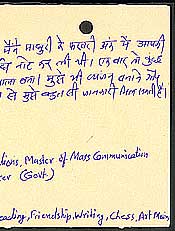 मैंने माधुरी के फरवरी अंक में आपकी
नोट कर ली थी। एक बार तो मुझे
बना। मुझे भी व्यंजन बनाने और
से मुझे बहुत सी जानकारी मिल जाती है।
tions, Master of Mass Communication
cer (Govt.)
eading, Friendship, Writing, Chess, Art Main